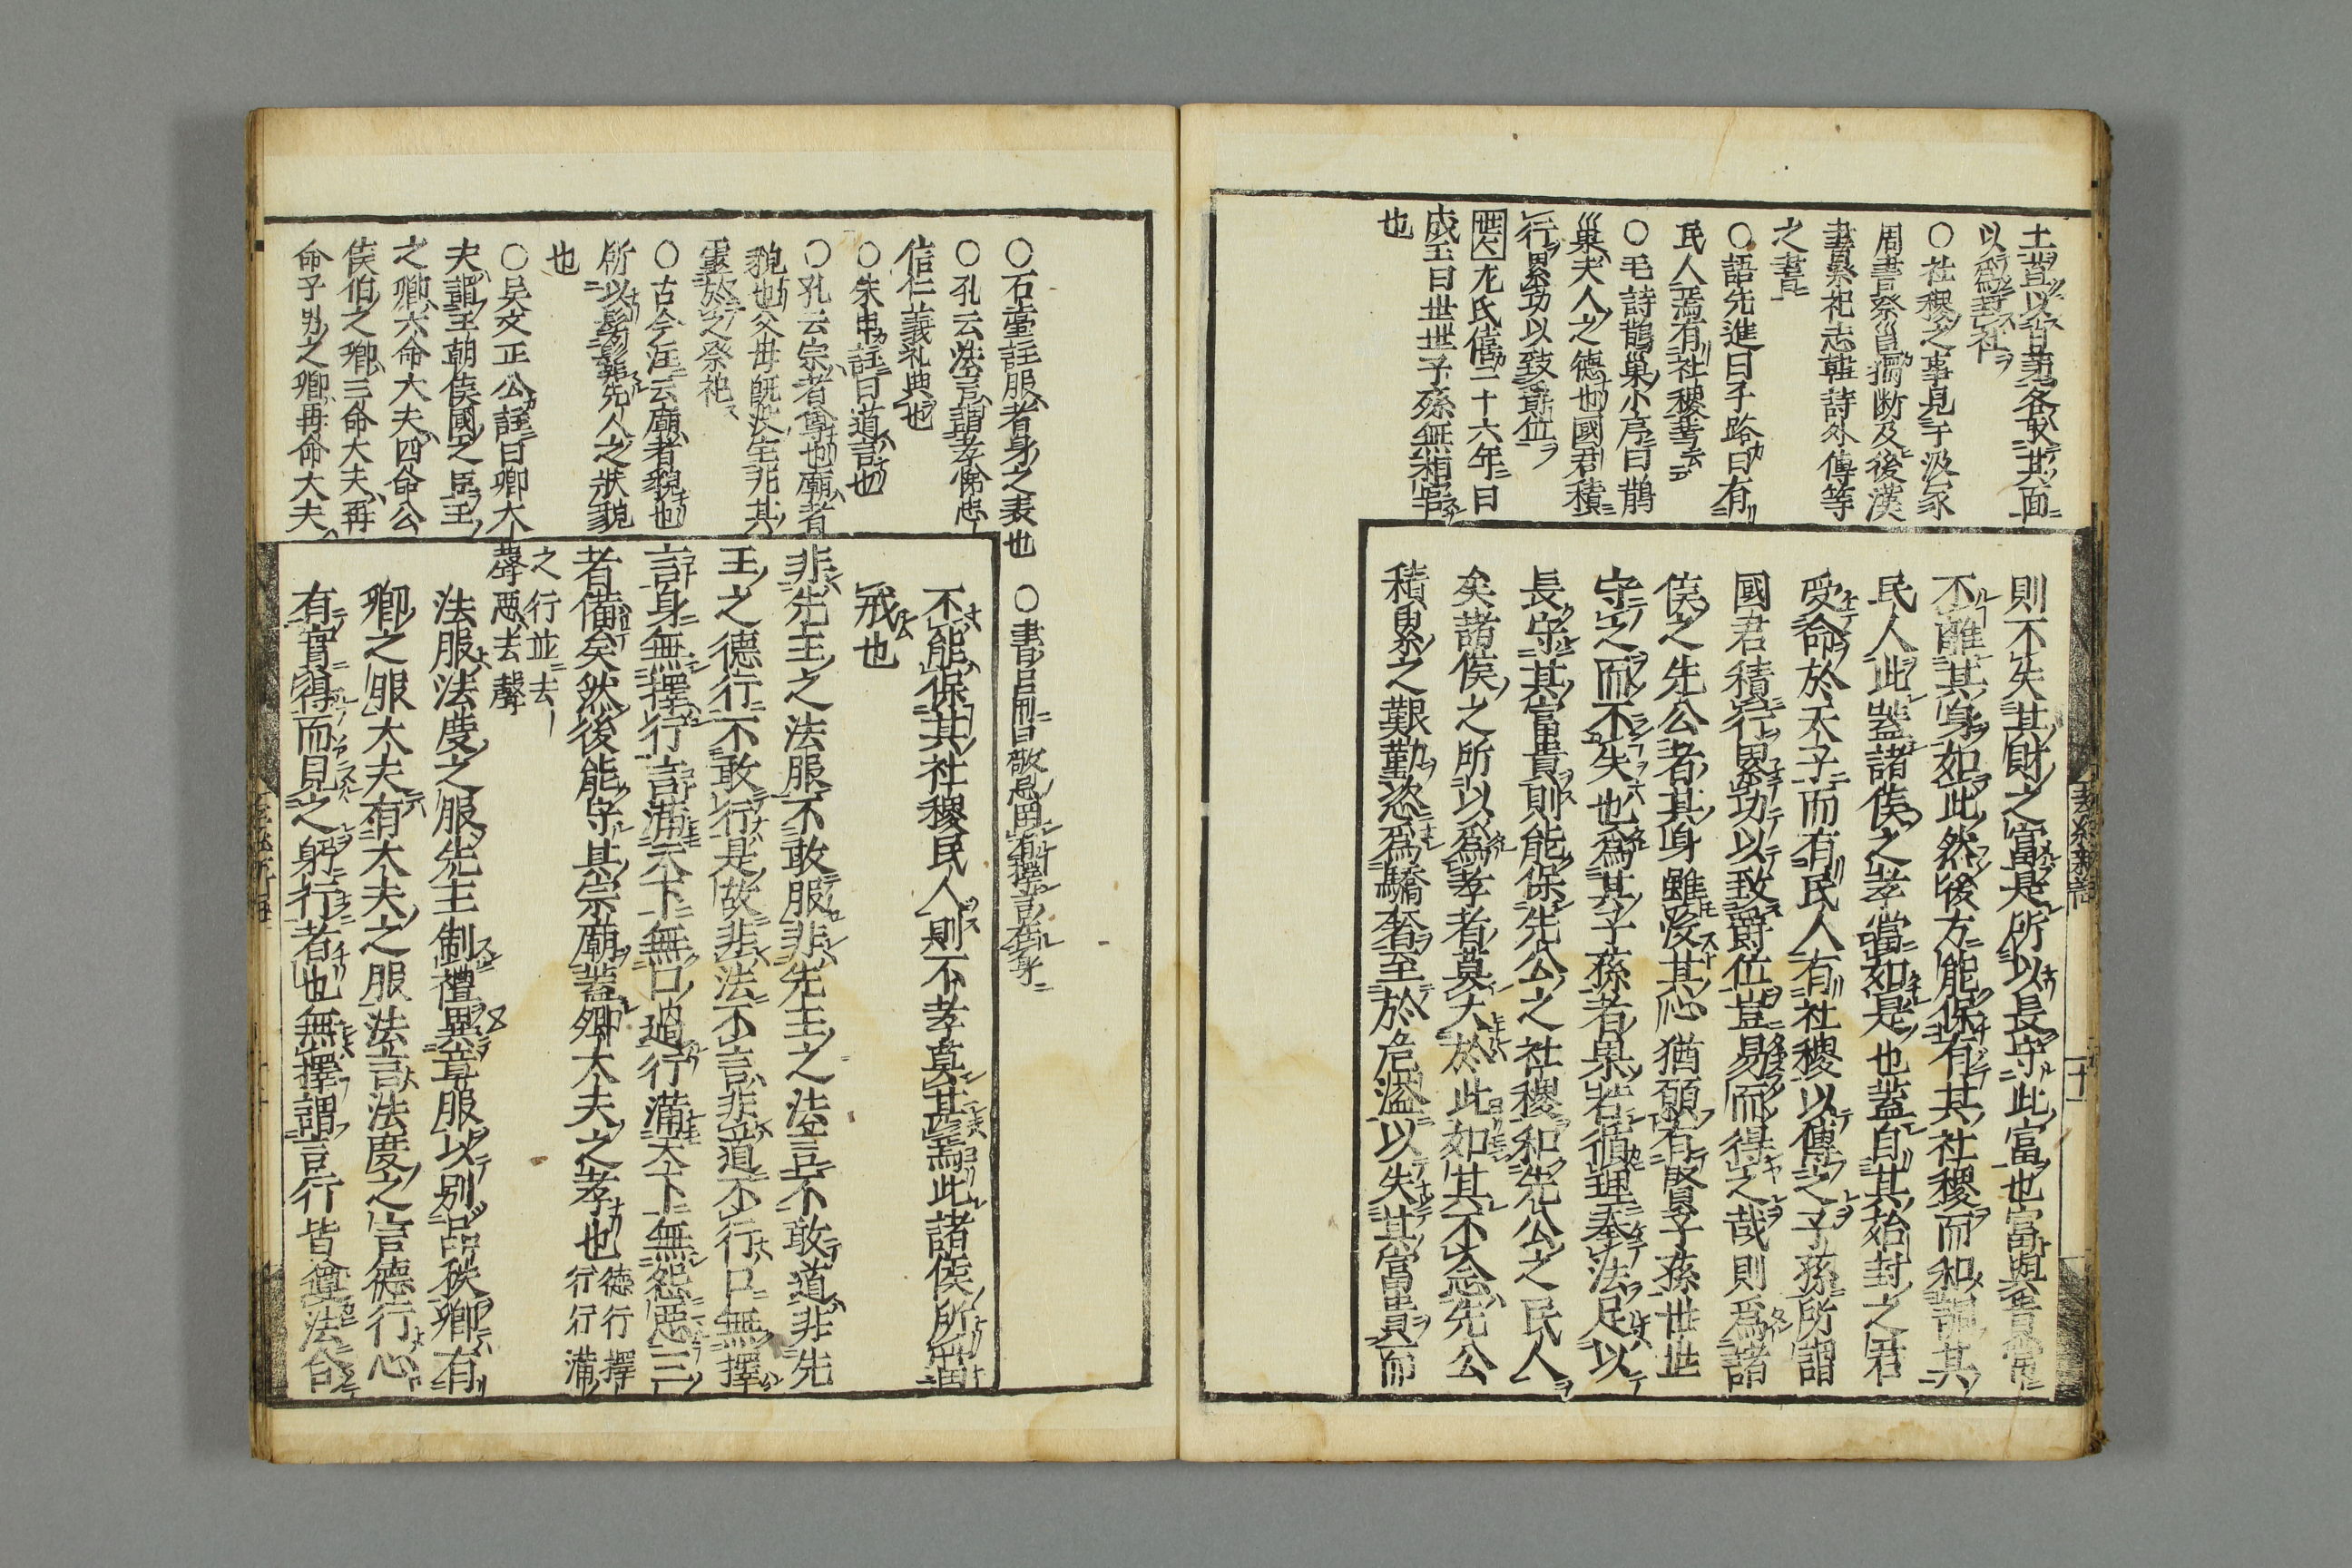 土苴以白茅各取其面
以爲封社
○社稷之事見于汲冢
周書祭邕獨断及後漢
書祭祀志韓詩外傳等
之書
○語先進曰子路曰有
民人焉有社稷焉云云
○毛詩鵲巢小序曰鵲
巢夫人之德也國君積
行累功以致爵位
尤氏僖二十六年曰
成王曰世世子孫無相害
也
則不失其財之富是所以長守此富也富與貴常
不離其身如此然後方能保有其社稷而和調其
民人此蓋諸侯之孝當如是也蓋自其始封之君
受命於天子而有民人有社稷以傳之子孫所謂
國君積行累功以致爵位豈易而得之哉則爲諸
侯之先公者其身雖没其心猶願有賢子孫世世
守之而不失也爲其子孫者果若循理奉法足以
長守其富貴則能保先公之社稷和先公之民人
矣諸侯之所以爲孝者莫大於此如其不念先公
積累之艱勤恣爲驕奢至於危溢以失其富貴而
十一
○石臺註服者身之表也
○書呂刑曰敬忌罔有擇言在身
○孔云法言謂孝悌忠
信仁義礼典也
○朱申註曰道言也
○孔云宗者尊也廟者
貌也父母既没宅兆其
靈於之祭祀
○古今注云廟者貌也
所以髣髴先人之狀貌
也
○呉文正公註曰卿大
夫謂王朝侯國之臣王
之卿六命大夫四命公
侯伯之卿三命大夫再
命子男之卿再命大夫
不能保其社稷民人則不孝莫甚焉此諸侯所當
戒也
非先王之法服不敢服非先王之法言不敢道非先
王之德行不敢行是故非法不言非道不行口無擇
言身無擇行言滿天下無口過行滿天下無怨惡三
者備矣然後能守其宗廟蓋卿大夫之孝也德行擇
行行滿
之行並去
聲惡去聲
法服法度之服先王制禮異章服以別品秩卿有
卿之服大夫有大夫之服法言法度之言德行心
有實得而見之躬行者也無擇謂言行皆遵法合